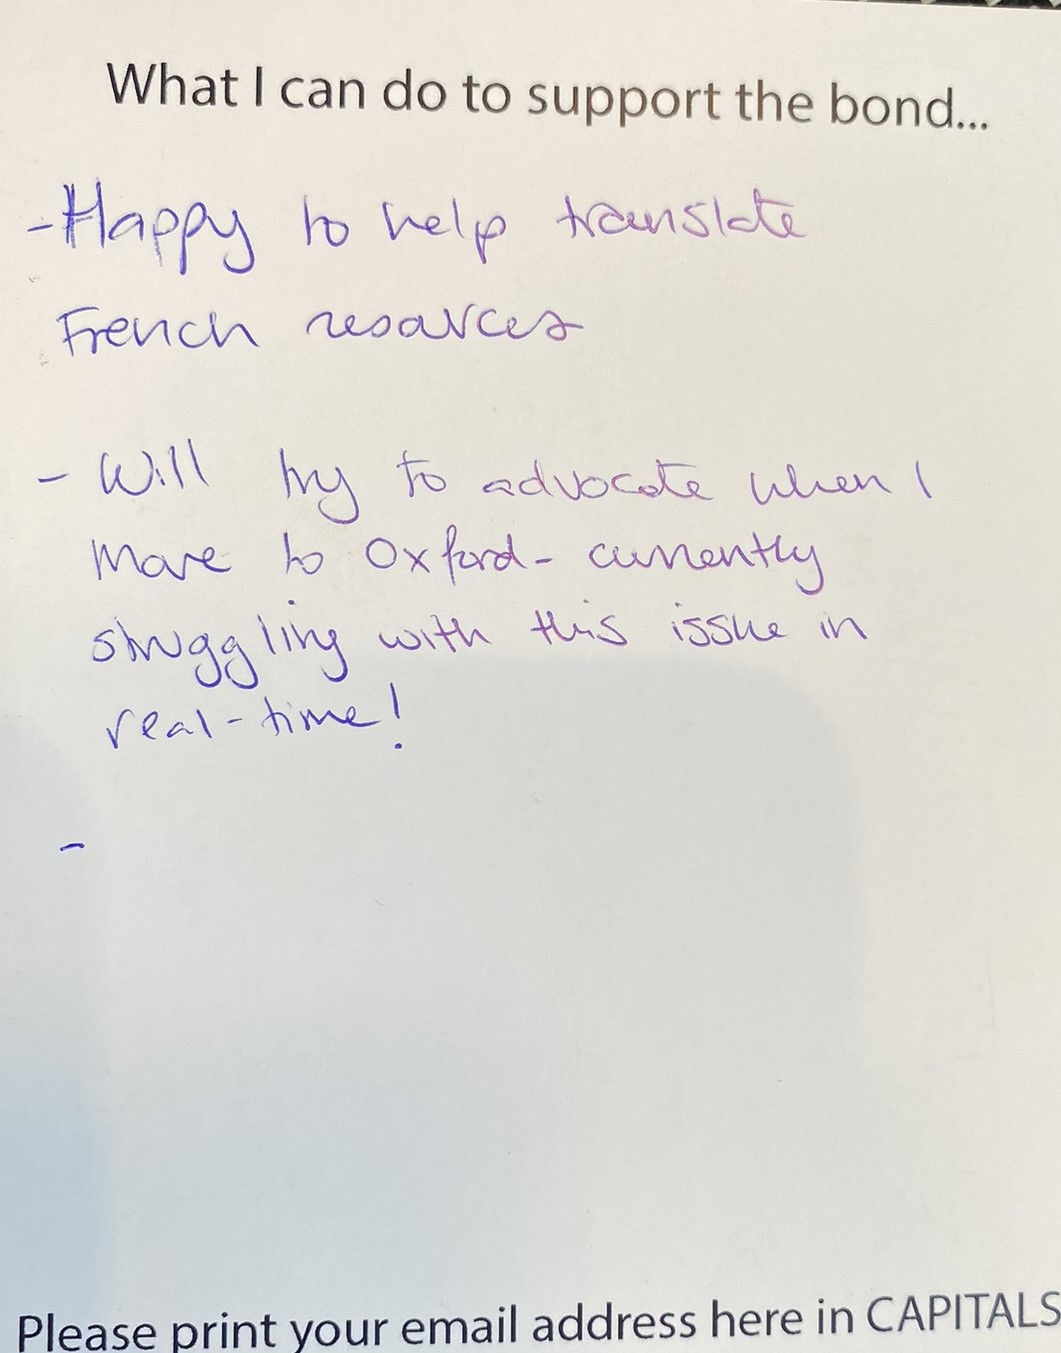 What I can do to support the bond...
- Happy to help translate
French resources
- Will try to advocate when I
move to Oxford - currently
struggling with this issue in
real-time!
-
Please print your email address here in CAPITALS